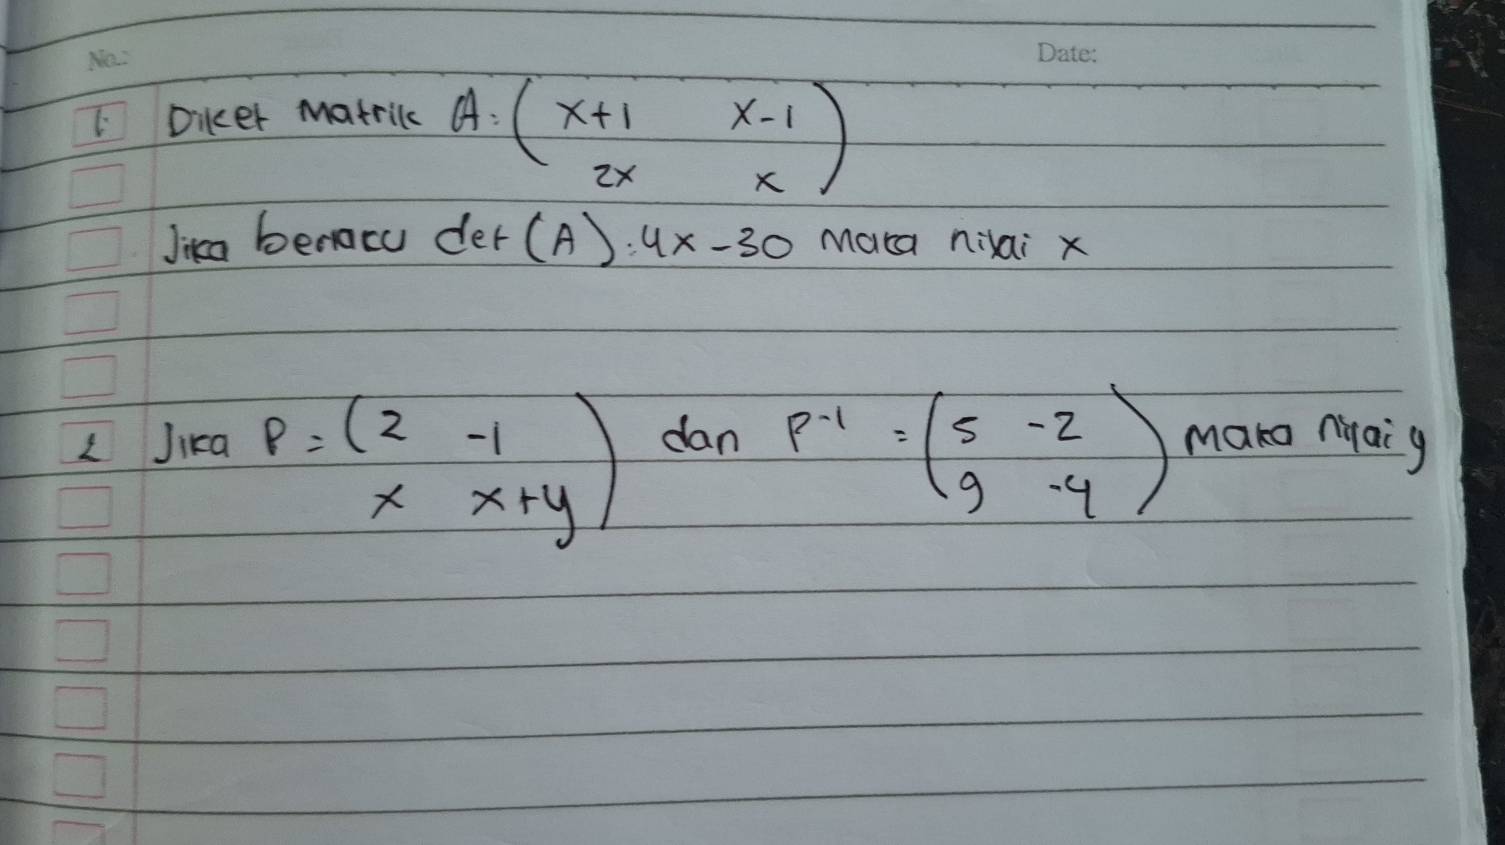 No.: Date:
1. Diket Matrik A: (x+1 x-1
2x x)
Jika beraku det (A): 4x-30 maka nilai x
2 Jika P = (2 -1 dan P-1 = (5 -2 maka nilai y
x x+y) 9 -4)